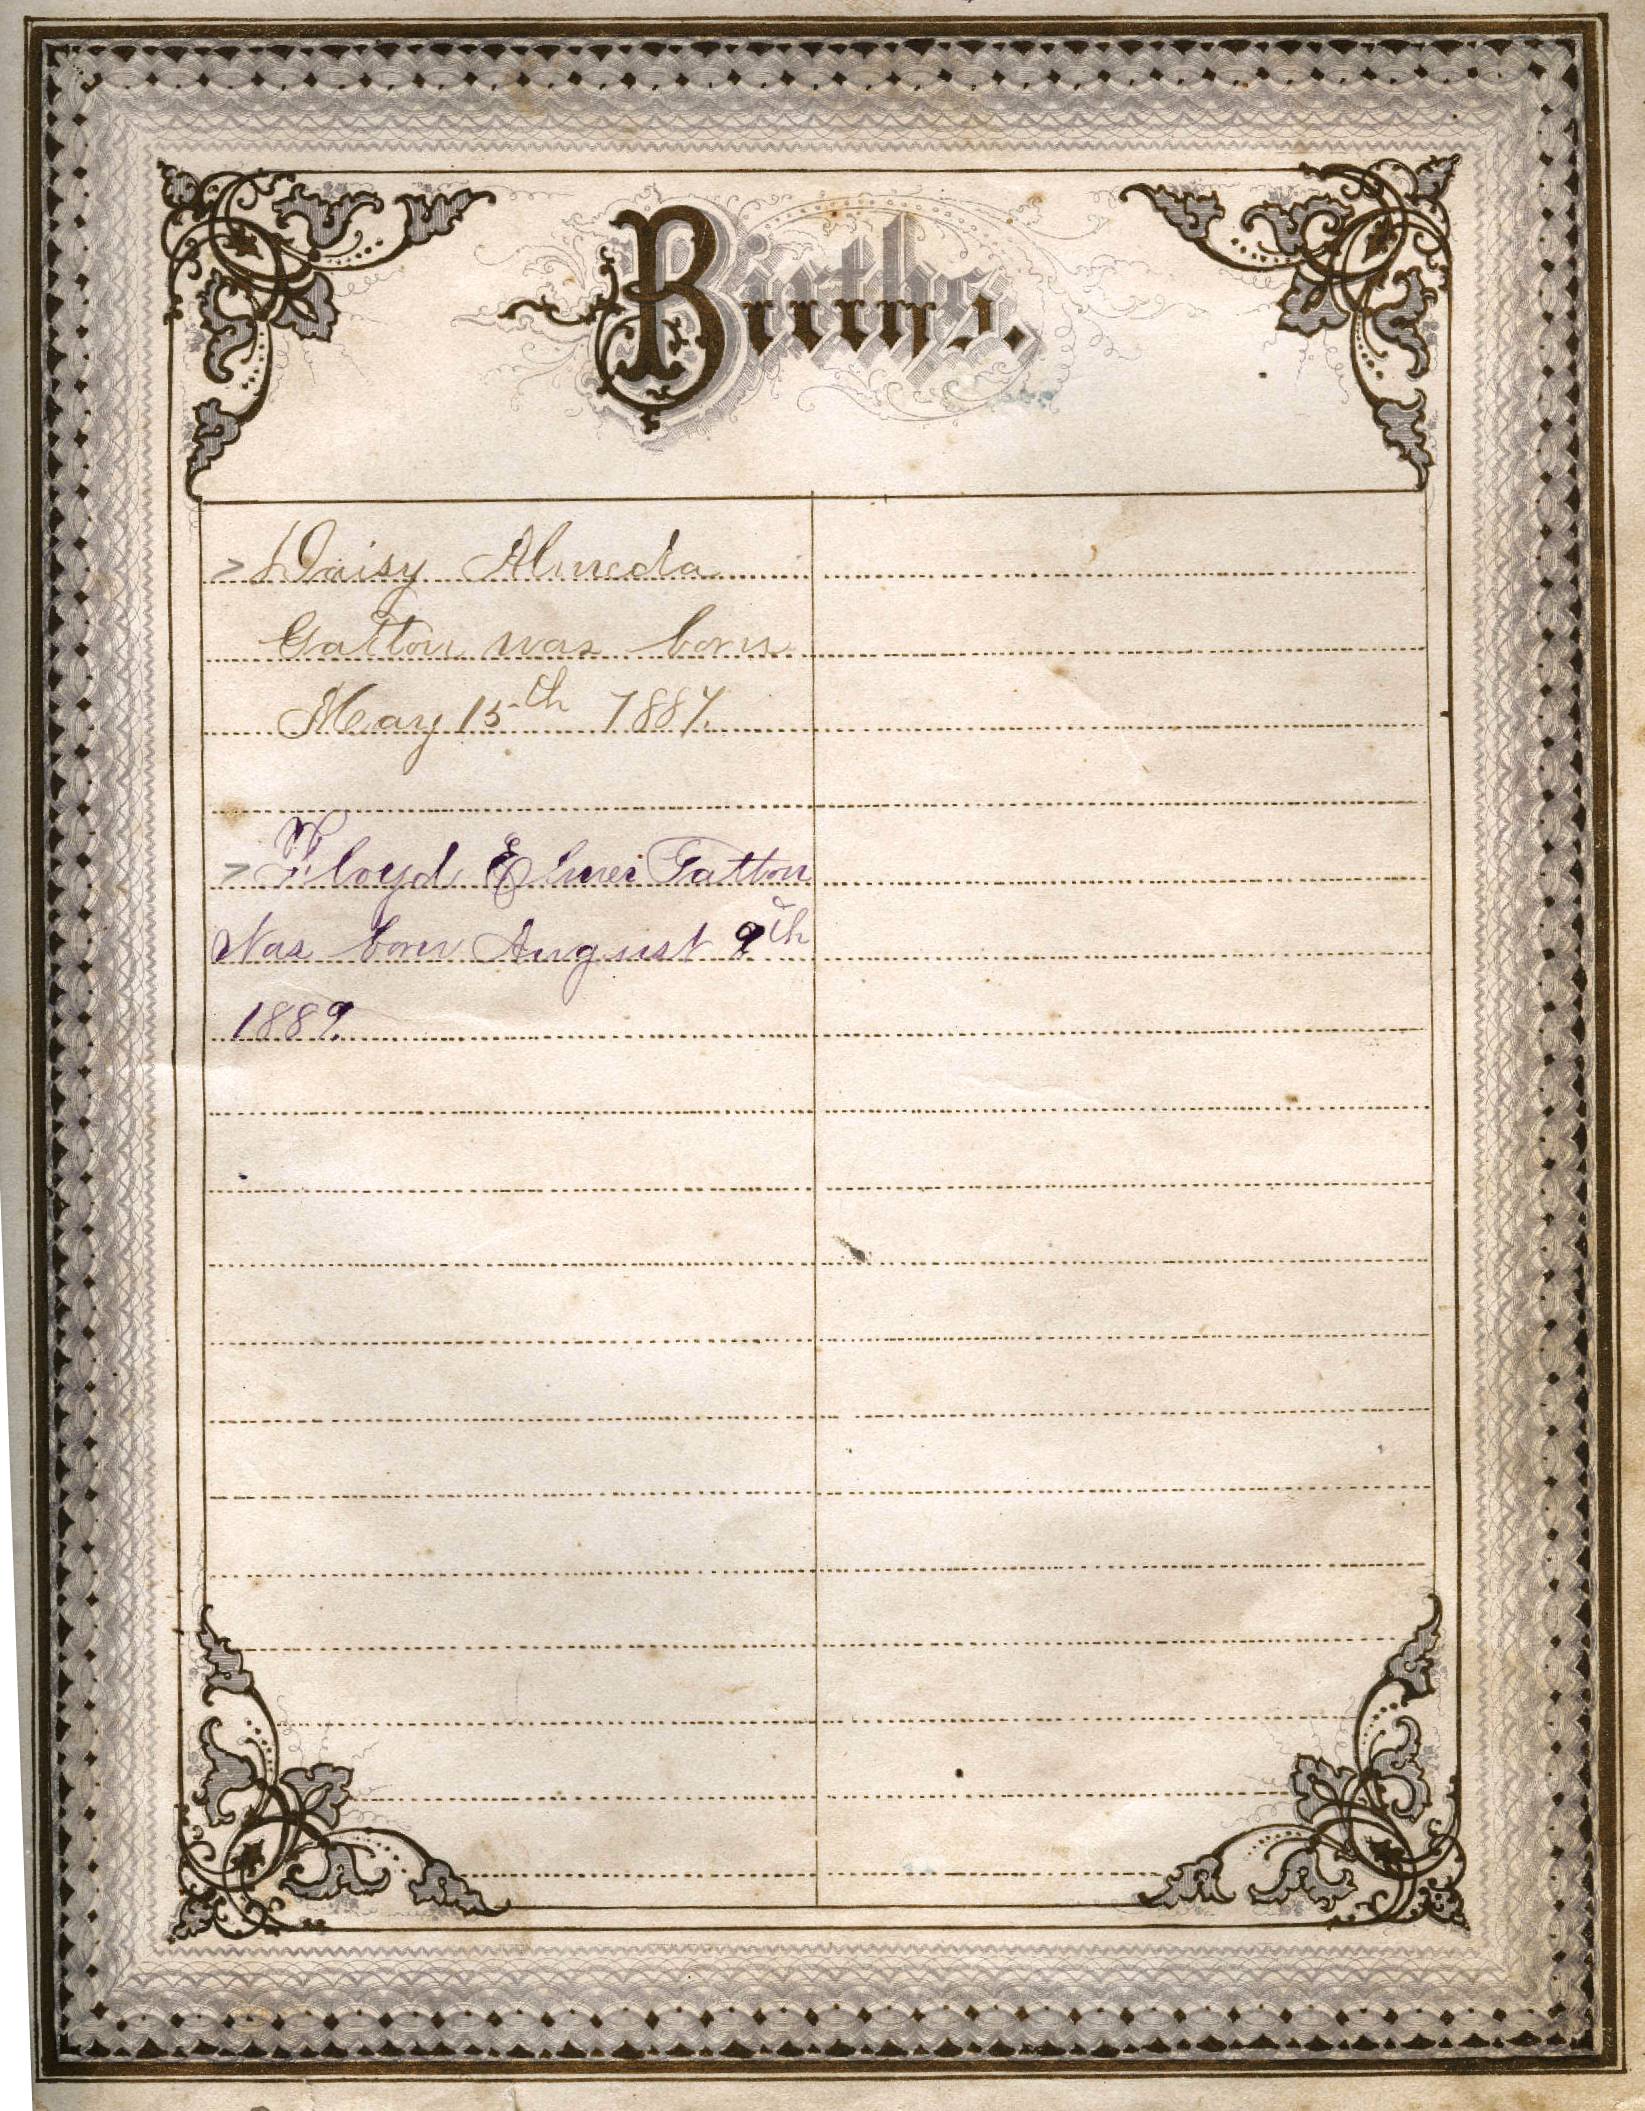 Births.
Daisy Almeda
Gatton was born
May 15th 1887.
Floyd Elmer Gatton
Was born August 9th
1889.